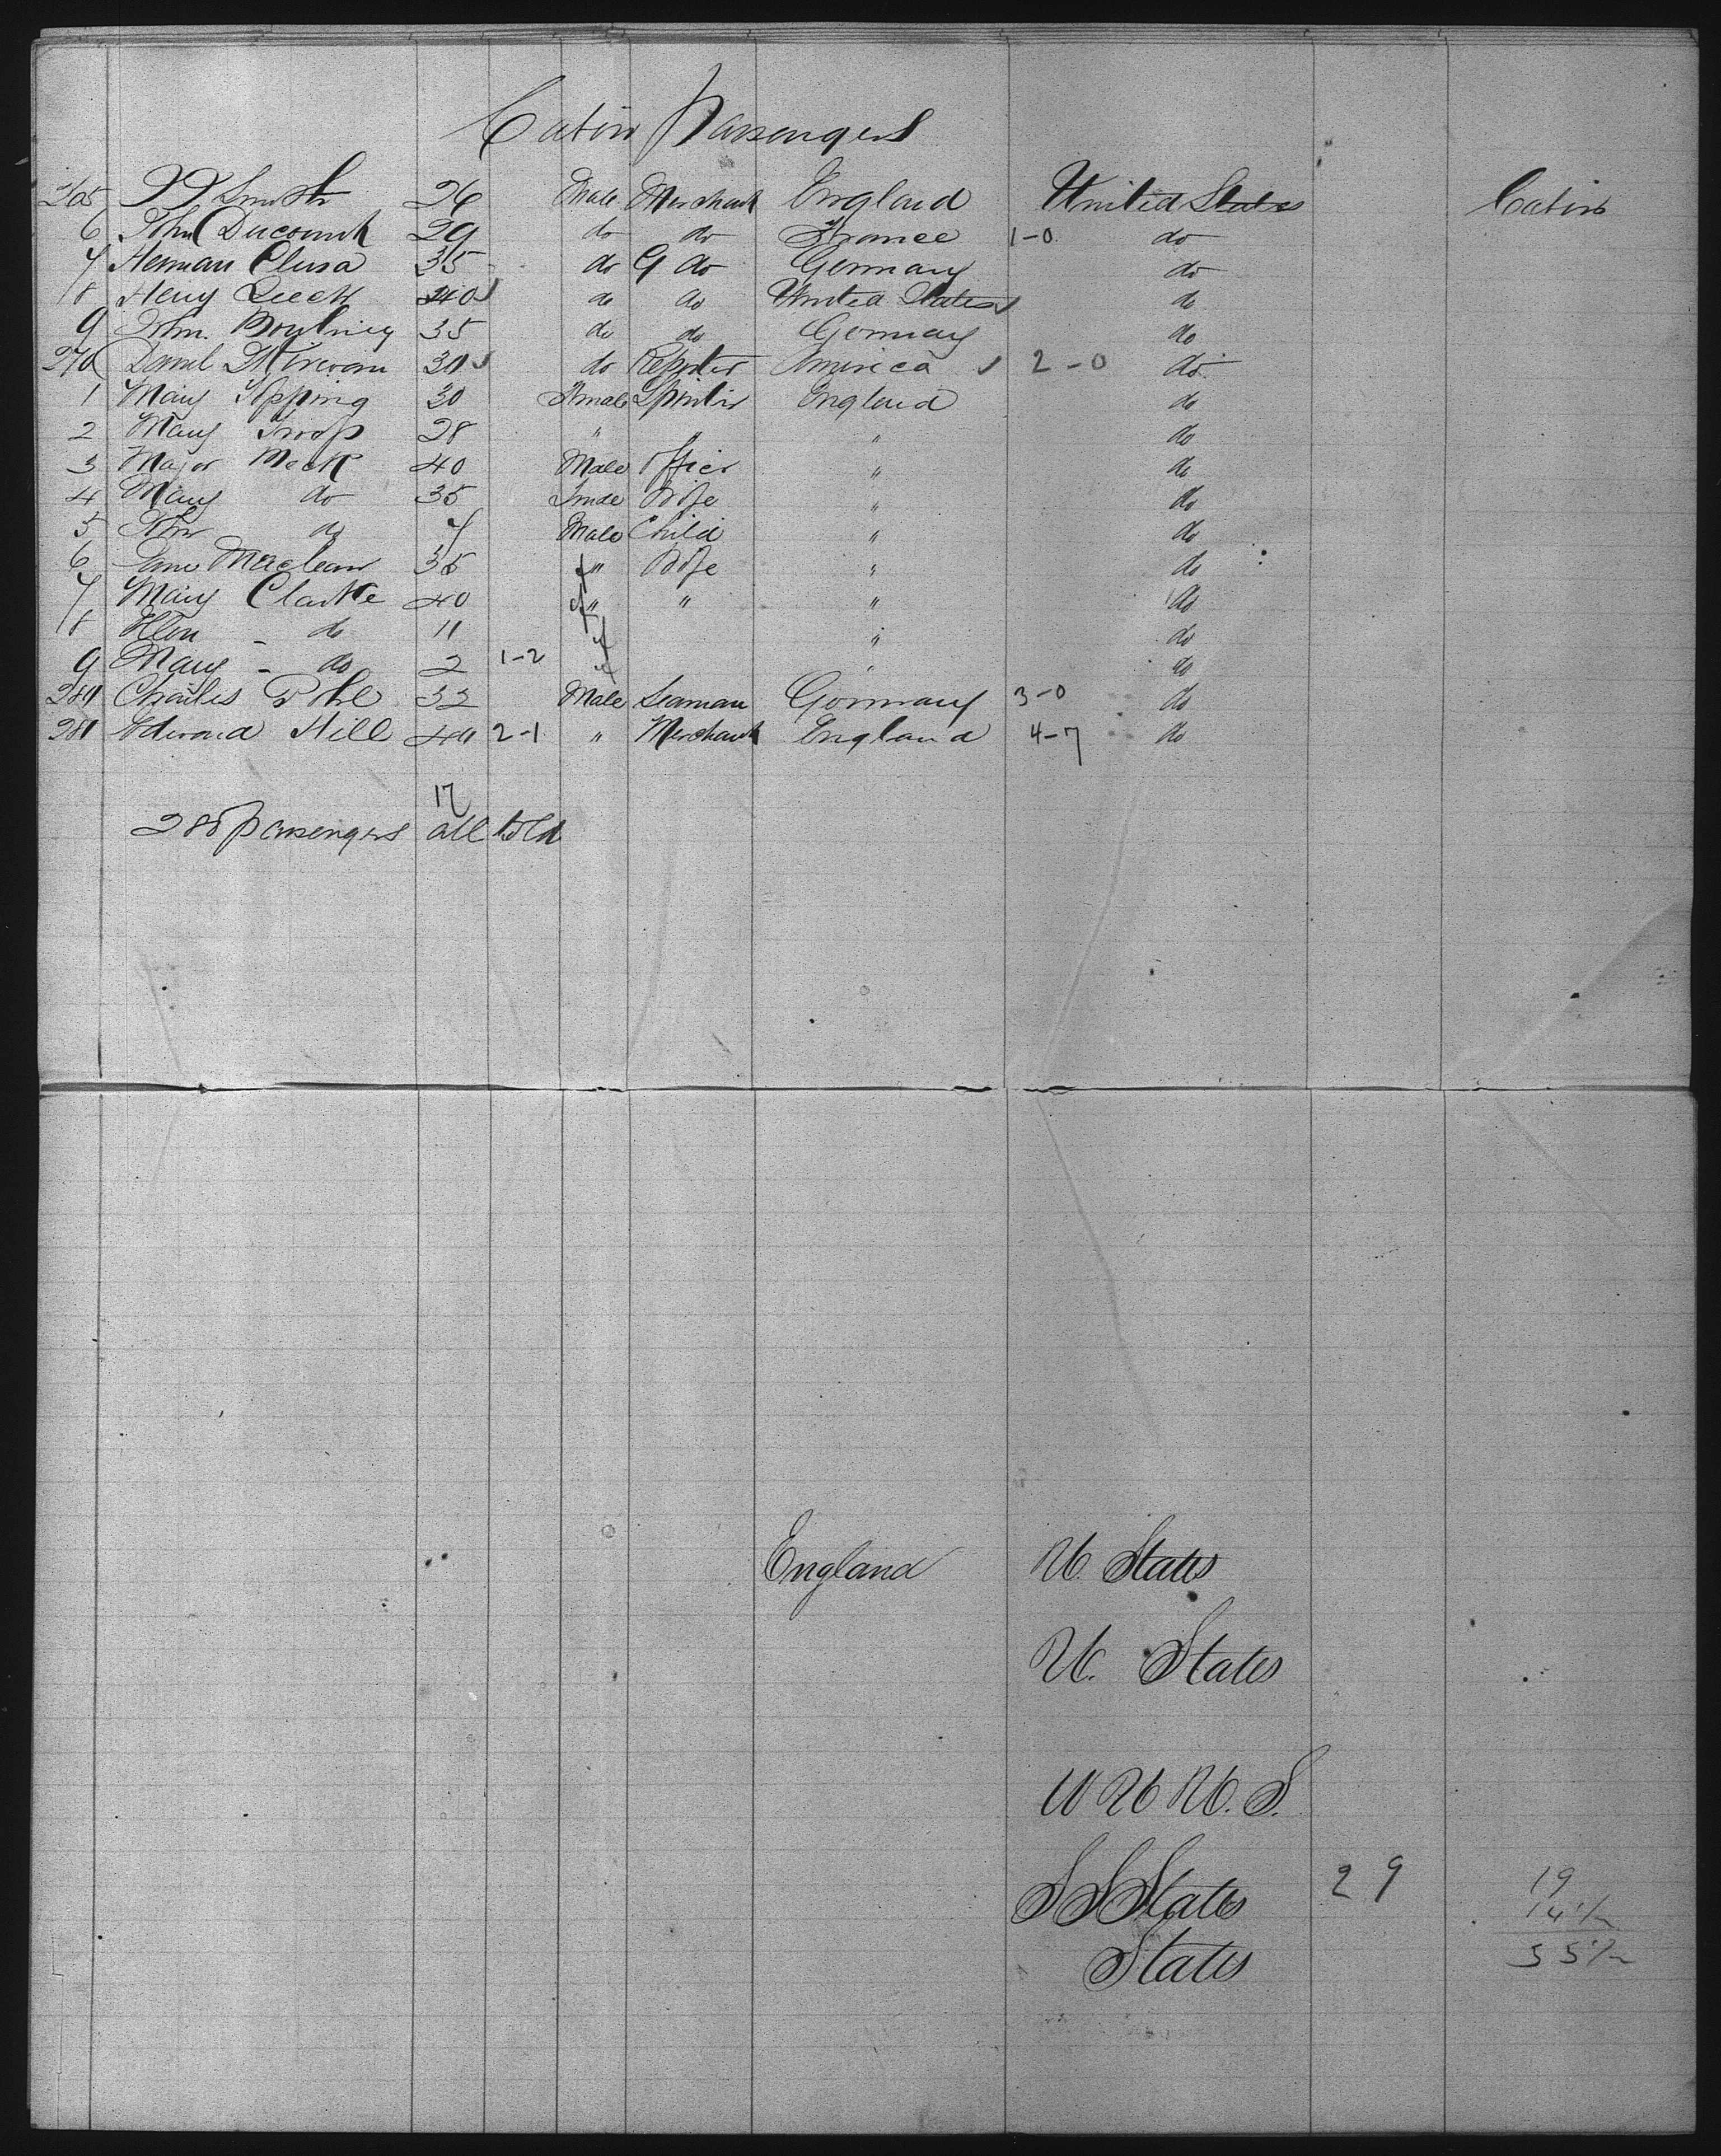 Cabin Passengers
265 Smith 26 Male Merchant England United States Cabin
6 John Ducomah 29 do do France 1-0 do
7 Herman Clusa 35 do G do Germany do
8 Henry Leech 40 do do United States do
9 John 35 do do Germany do
270 Daniel Kirwan 30 do Reporter America 2-0 do
1 Mary Topping 30 Female Spinster England do
2 Mary Troop 28 " " " do
3 Major Meck 40 Male Officer " do
4 Mary do 35 Female Wife " do
5 John do 7 Male Child " do
6 Jane Maclean 35 f " Wife " do
7 Mary Clarke 40 f " " " do
8 Ellen - do 11 f " do
9 Mary - do 2 1-2 f " do
280 Charles Pohl 32 Male Seaman Germany 3-0 do
281 Edward Hill 40 2-1 " Merchant England 4-7 do
17
passengers all told
England U. States
U. States
U U U. S.
S S States 29 19
14 1/2
States 55 1/2